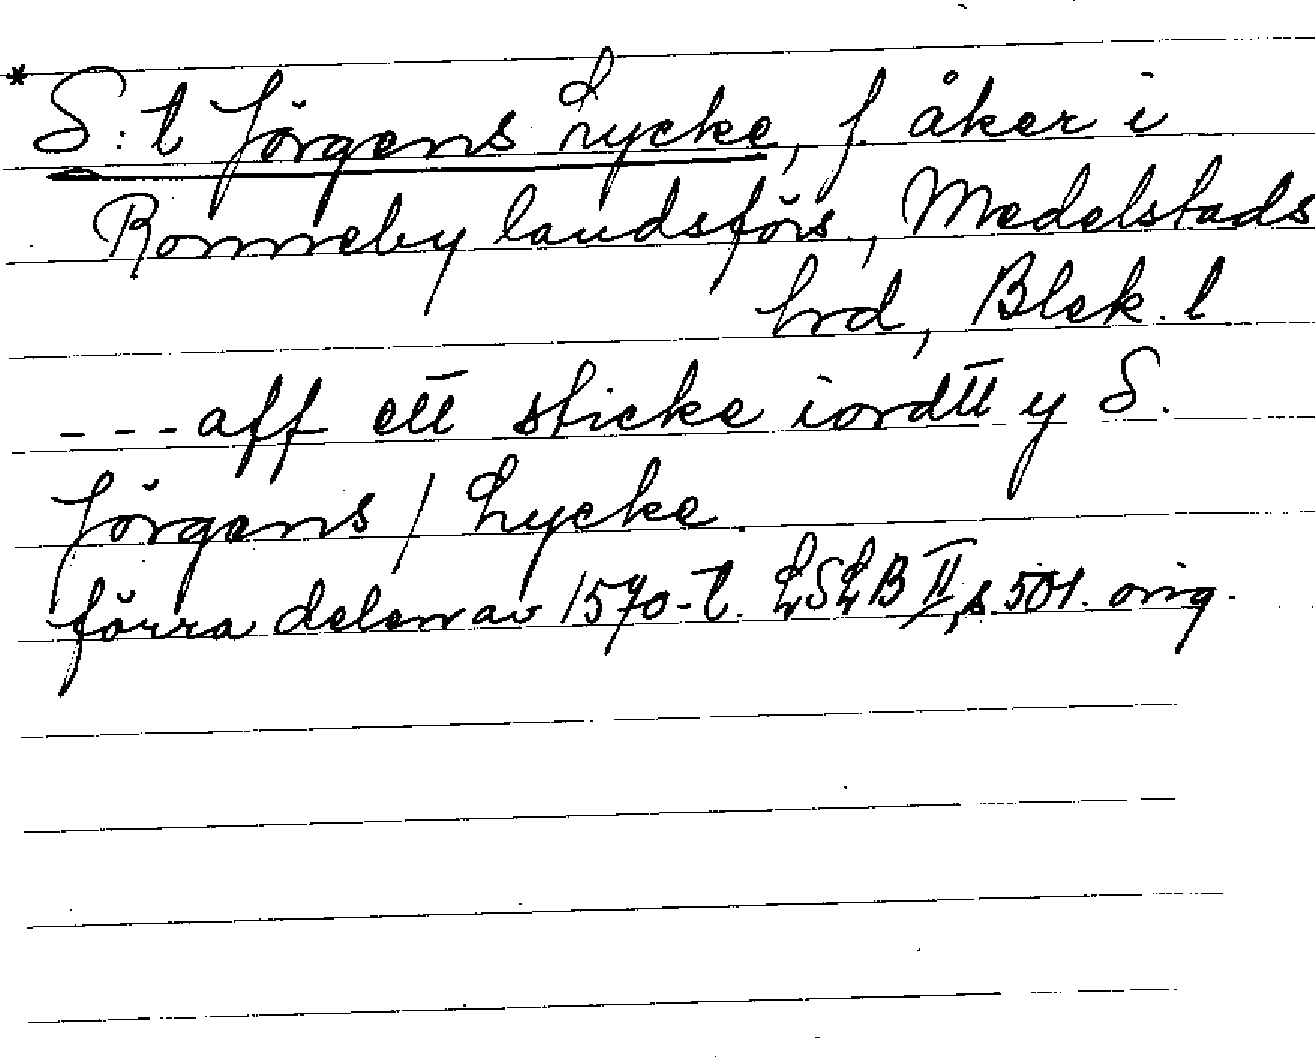 * S:t Jörgens Lycke, f. åker i
Ronneby landsförs., Medelstads
hrd, Blek. l
---aff ett sticke iordtt y S.
Jörgens / Lycke.
förra delen av 1570-t. LSLB II, s. 501. orig.